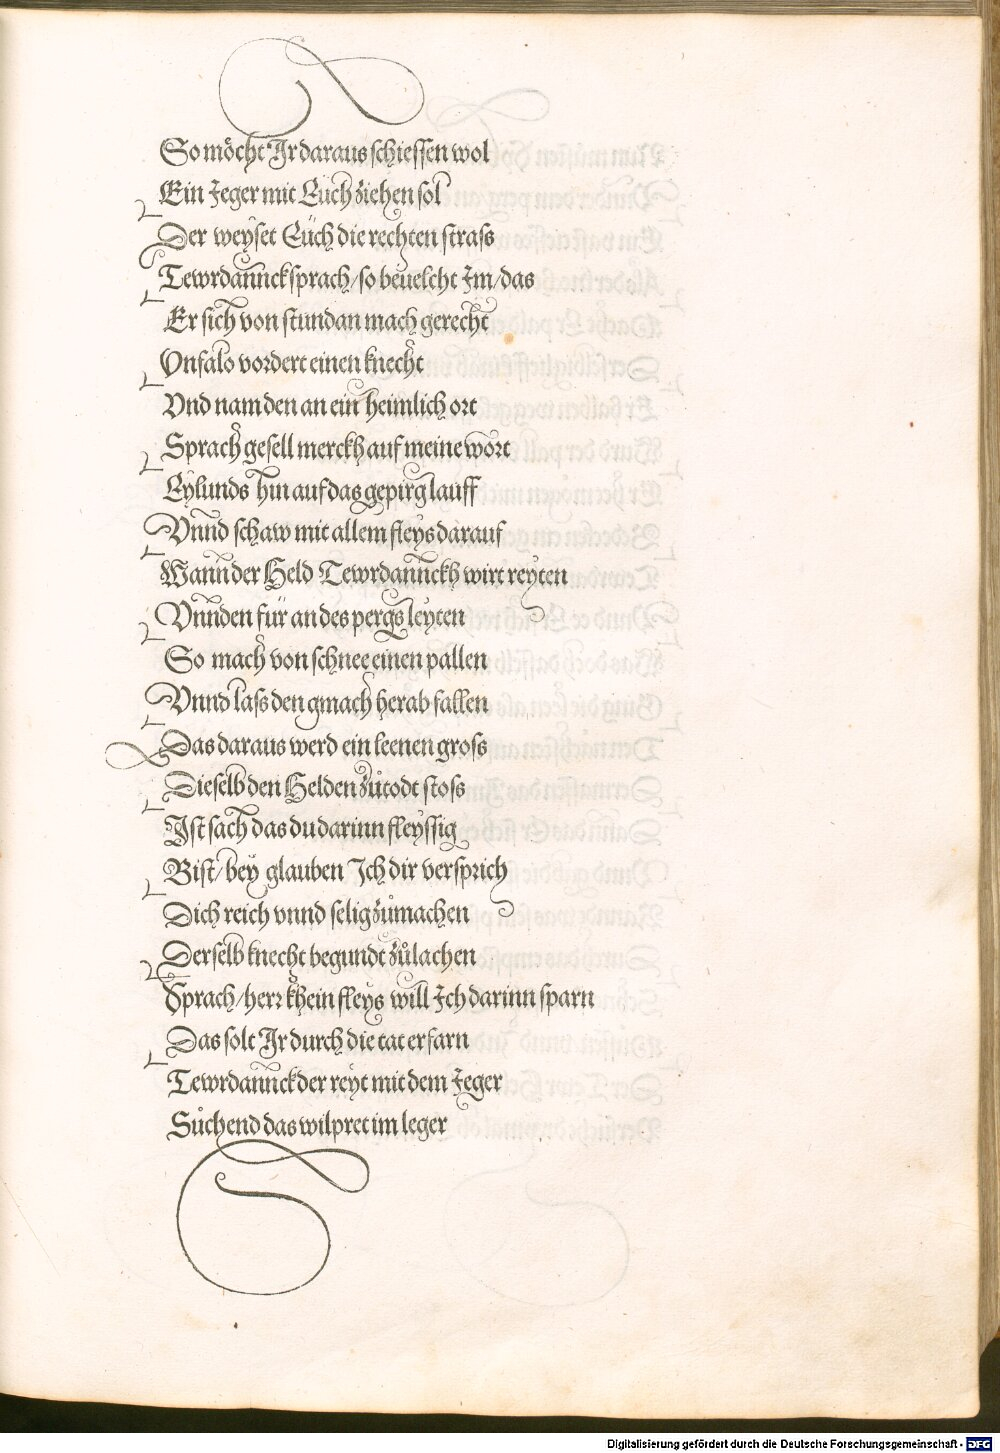 So möcht Ir daraus schiessen wol
Ein Jeger mit Euch ziehen sol
Der weyset Euch die rechten strass
Tewrdannck sprach/so beuelcht Im/das
Er sich von stundan mach gerecht
Vnfalo vordert einen knecht
Vnd nam den an ein heimlich ort
Sprach gesell merckh auf meine wort
Eylunds hin auf das gepirg lauff
Vnnd schaw mit allem fleys darauf
Wann der Held Tewrdannckh wirt reyten
Vnnden für an des pergs leyten
So mach von schnee einen pallen
Vnnd lass den gmach herab fallen
Das daraus werd ein leenen gross
Dieselb den Helden zůtodt stoss
Ist sach das du darinn fleyssig
Bist/bey glauben Ich dir versprich
Dich reich vnnd selig zůmachen
Derselb knecht begundt zůlachen
Sprach/herr khein fleys will Ich darinn sparn
Das solt Ir durch die tat erfarn
Tewrdannck der reyt mit dem Jeger
Sůchend das wilpret im leger
Digitalisierung gefördert durch die Deutsche Forschungsgemeinschaft - DFG